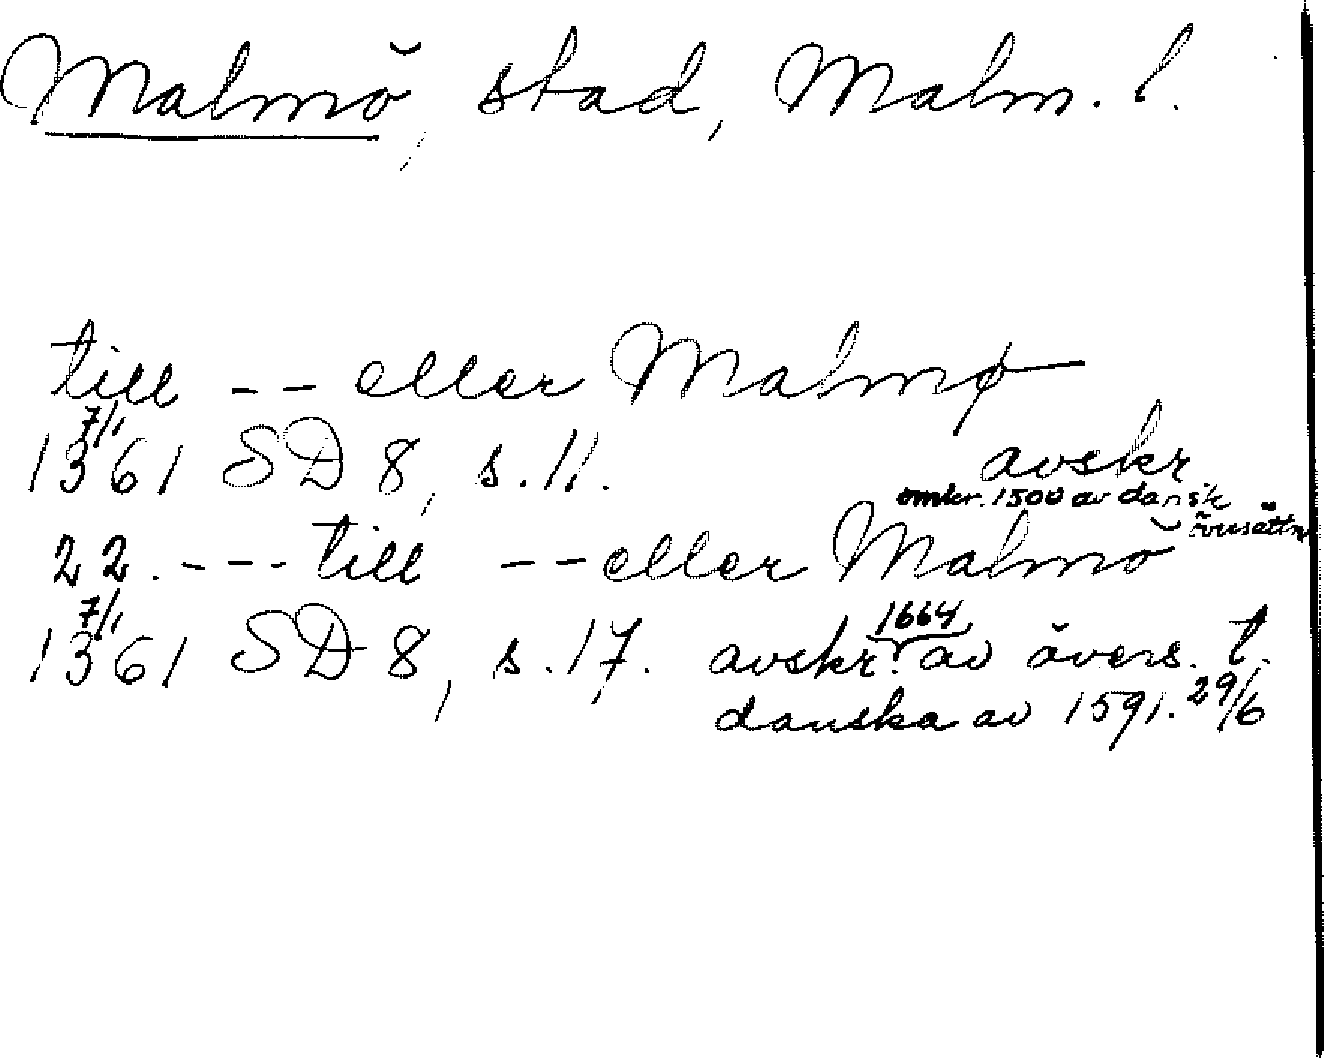 Malmö, stad, Malm. l.
till -- eller Malmø
7/1
1361 SD 8, s. 11. avskr
omkr. 1500 av dansk
översättn
22. --- till -- eller Malmö
7/1
1361 SD 8, s. 17. avskr. 1664 av övers. t.
danska av 1591. 29/6